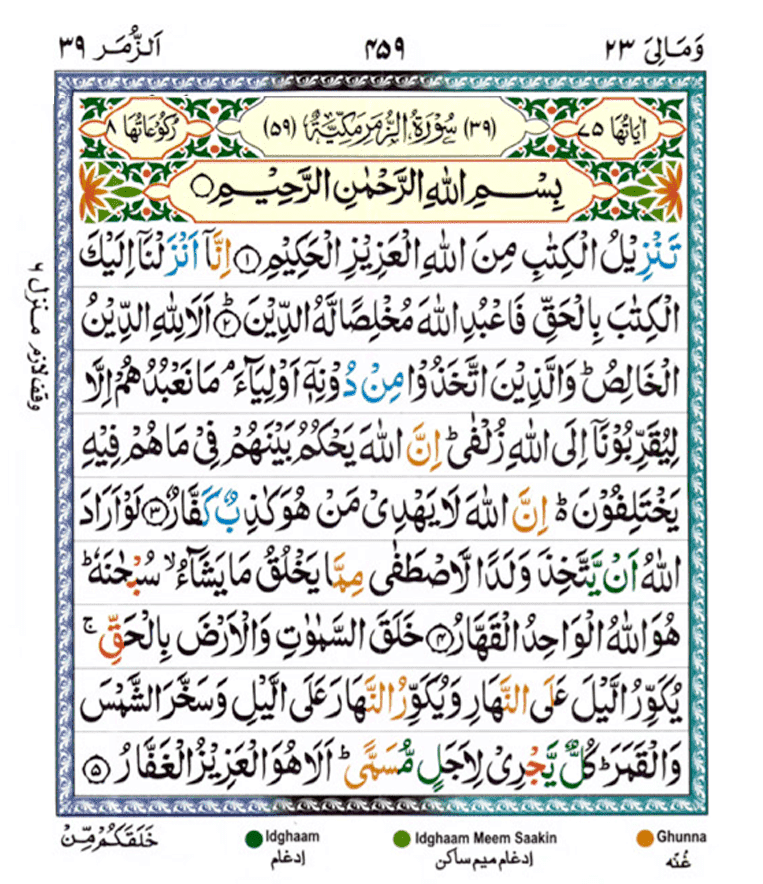 وَمَالِىَ ٢٣ ۴۵۹ اَلزُّمَر ٣٩
اٰيَاتُهَا ٧٥ (٣٩) سُوْرَةُ الزُّمَرِ مَكِّيَّةٌ (٥٩) رُكُوْعَاتُهَا ٨
بِسْمِ اللّٰهِ الرَّحْمٰنِ الرَّحِيْمِ
تَنْزِيْلُ الْكِتٰبِ مِنَ اللّٰهِ الْعَزِيْزِ الْحَكِيْمِ ۝۱ اِنَّاۤ اَنْزَلْنَاۤ اِلَيْكَ
الْكِتٰبَ بِالْحَقِّ فَاعْبُدِ اللّٰهَ مُخْلِصًا لَّهُ الدِّيْنَ ؕ۝۲ اَلَا لِلّٰهِ الدِّيْنُ
الْخَالِصُ ؕ وَالَّذِيْنَ اتَّخَذُوْا مِنْ دُوْنِهٖۤ اَوْلِيَآءَ ۘ مَا نَعْبُدُهُمْ اِلَّا
لِيُقَرِّبُوْنَاۤ اِلَى اللّٰهِ زُلْفٰى ؕ اِنَّ اللّٰهَ يَحْكُمُ بَيْنَهُمْ فِىْ مَا هُمْ فِيْهِ
يَخْتَلِفُوْنَ ؕ۬ اِنَّ اللّٰهَ لَا يَهْدِىْ مَنْ هُوَ كٰذِبٌ كَفَّارٌ ۝۳ لَوْ اَرَادَ
اللّٰهُ اَنْ يَّتَّخِذَ وَلَدًا لَّاصْطَفٰى مِمَّا يَخْلُقُ مَا يَشَآءُ ۙ سُبْحٰنَهٗ ؕ
هُوَ اللّٰهُ الْوَاحِدُ الْقَهَّارُ ۝۴ خَلَقَ السَّمٰوٰتِ وَالْاَرْضَ بِالْحَقِّ ۚ
يُكَوِّرُ الَّيْلَ عَلَى النَّهَارِ وَيُكَوِّرُ النَّهَارَ عَلَى الَّيْلِ وَسَخَّرَ الشَّمْسَ
وَالْقَمَرَ ؕ كُلٌّ يَّجْرِىْ لِاَجَلٍ مُّسَمًّى ؕ اَلَا هُوَ الْعَزِيْزُ الْغَفَّارُ ۝۵
منزل ۶
وقف لازم
خَلَقَكُمْ مِّنْ
Idghaam
إدغام
Idghaam Meem Saakin
إدغام ميم ساكن
Ghunna
غُنّه